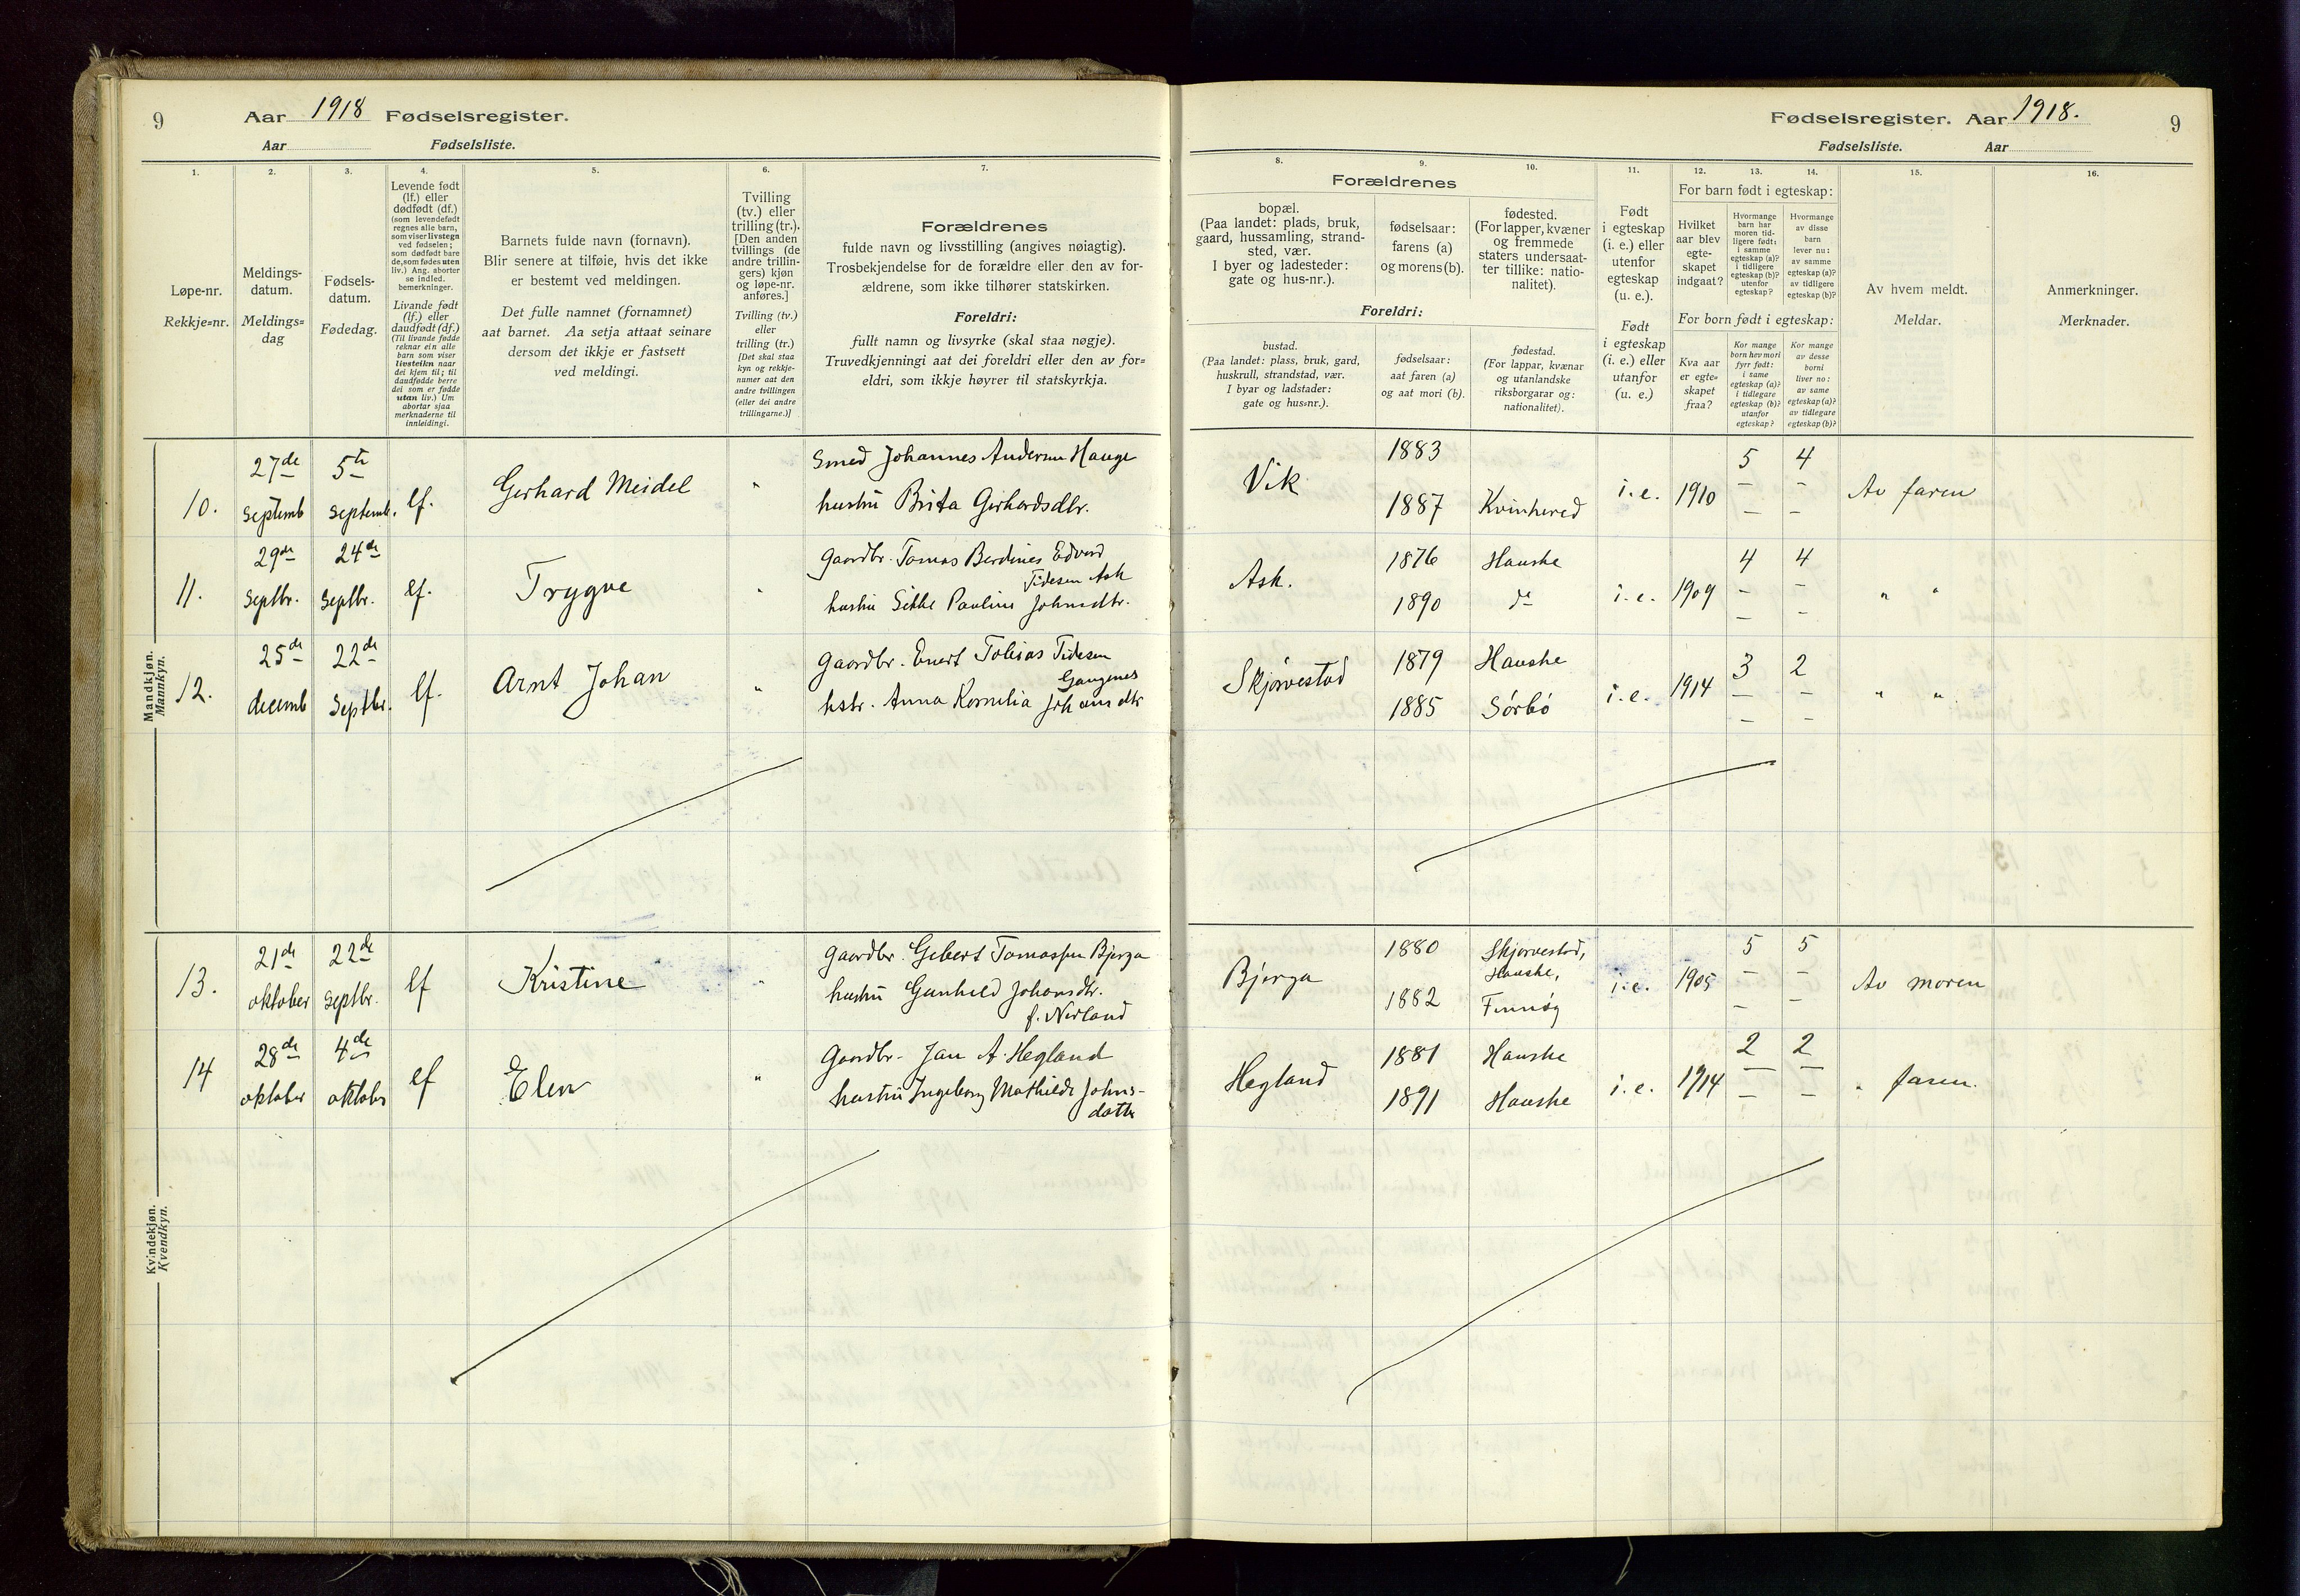 9
Aar 1918 Fødselsregister.
Aar Fødselsliste.
1.
2.
3.
4.
5.
6.
7.
Løpe-nr.
Rekkje=nr.
Meldings-
datum.
Meldings=
dag
Fødsels-
datum.
Fødedag.
Levende født
(lf.) eller
dødfødt (df.)
(som levendefødt
regnes alle barn,
som viser livstegn
ved fødselen;
som dødfødt bare
de, som fødes uten
liv.) Ang. aborter
se indled.
bemerkninger.
Livande født
(lf.) eller
daudfødt (df.)
(Til livande fødde
reknar ein alle
barn som viser
livsteikn naar
dei kjem til; til
daudfødde berre
dei som er fødde
utan liv.) Um
abortar sjaa
merknaderne til
innleidingi.
Barnets fulde navn (fornavn).
Blir senere at tilføie, hvis det ikke
er bestemt ved meldingen.
Det fulle namnet (fornamnet)
aat barnet. Aa setja attaat seinare
dersom det ikkje er fastsett
ved meldingi.
Tvilling
(tv.) eller
trilling (tr.).
[Den anden
tvillings (de
andre trillin-
gers) kjøn
og løpe-nr.
anføres.]
Tvilling (tv.)
eller
trilling (tr.)
[Det skal staa
kyn og rekkje-
numer aat den
andre tvillingen
(eller dei andre
trillingarne.)]
Forældrenes
fulde navn og livsstilling (angives nøiagtig).
Trosbekjendelse for de forældre eller den av for-
ældrene, som ikke tilhører statskirken.
Foreldri:
fullt namn og livsyrke (skal staa nøgje).
Truvedkjenningi aat dei foreldri eller den av for=
eldri, som ikkje høyrer til statskyrkja.
Mandkjøn.
Mannkyn.
10.
27de
septemb
5te
septemb.
lf.
Gerhard Meidel
"
Smed Johannes Andersen Hauge
hustru Brita Gerhardsdtr.
11.
29de
Septbr.
24de
Septbr.
lf.
Trygve
"
Gaardbr. Tomas Berdines Edvard
Tidesen Ask
hustru Sikke Pauline Johnsdtr.
12.
25de
decemb
22de
Septbr.
lf.
Arnt Johan
"
Gaardbr. Enert Tobias Tidesen
Gangenes
hstr. Anna Kornelia Johansdtr
Kvindekjøn.
Kvendkyn.
13.
21de
oktober
22de
Septbr.
lf
Kristine
"
Gaardbr. Gebert Tomassen Bjerga
hustru Gunhild Johansdtr.
f. Nerland
14
28de
oktober
4de
oktober
lf
Elen
"
Gaardbr. Jan A. Hegland
hustru Ingeborg Mathilde Johns-
datter
Fødselsregister. Aar 1918.
9
Fødselsliste. Aar
8.
9.
10.
11.
12.
13.
14.
15.
16.
Forældrenes
bopæl.
(Paa landet: plads, bruk,
gaard, hussamling, strand-
sted, vær.
I byer og ladesteder:
gate og hus-nr.).
fødselsaar:
farens (a)
og morens (b).
fødested.
(For lapper, kvæner
og fremmede
staters undersaat-
ter tillike: natio-
nalitet).
Foreldri:
bustad.
(Paa landet: plass, bruk, gard,
huskrull, strandstad, vær.
I byar og ladstader:
gate og hus=nr.).
fødselsaar:
aat faren (a)
og aat mori (b).
fødestad.
(For lappar, kvænar
og utanlandske
riksborgarar og:
nationalitet).
Født
i egteskap
(i. e.) eller
utenfor
egteskap
(u. e.).
Født
i egteskap
(i. e.) eller
utanfor
(u. e.)
For barn født i egteskap:
Hvilket
aar blev
egte-
skapet
indgaat?
Hvormange
barn har
moren tid-
ligere født:
i samme
egteskap (a)?
i tidligere
egteskap (b)?
utenfor
egteskap?
Hvormange
av disse
barn
lever nu:
av samme
egteskap (a)?
av tidligere
egteskap (b)?
For born født i egteskap:
Kva aar
er egte=
skapet
fraa?
Kor mange
born hev mori
fyrr født:
i same
egteskap (a)?
i tidlegare
egteskap (b)?
utanfor
egteskap?
Kor mange
av desse
borni
liver no:
av same
egteskap (a)?
av tidlegare
egteskap (b)?
Av hvem meldt.
Meldar.
Anmerkninger.
Merknader.
Vik
1883
1887
Kvinhered
i. e.
1910
5
4
Av faren
Ask.
1876
1890
Hauske
do
i. e.
1909
4
4
" "
Skjørvestad
1879
1885
Hauske
Sørbø
i. e.
1914
3
2
" "
Bjerga
1880
1882
Skjørvestad,
Hauske,
Finnøy
i. e.
1905
5
5
Av moren
Hegland
1881
1891
Hauske
Hauske
i. e.
1914
2
2
" faren.